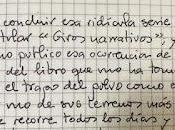 concluir esa ridícula serie
titular "Giros narrativos", y
no público esa ocurrencia de
del libro que me ha toma
el trajes del polvo como e
mo de sus terrenos más
e recorre todos los días y